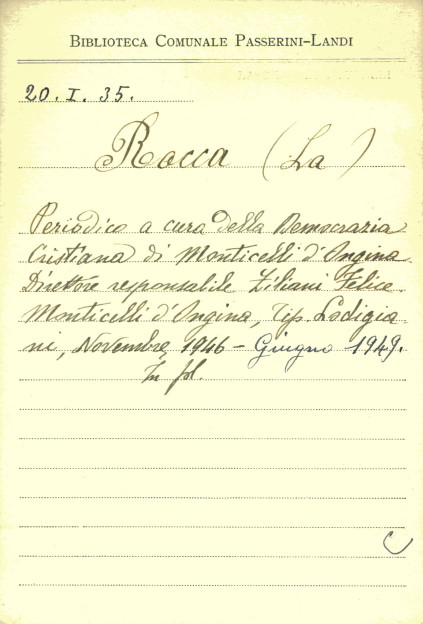 BIBLIOTECA COMUNALE PASSERINI-LANDI
20. I. 35.
Rocca (La)
Periodico a cura della Democrazia
Cristiana di Monticelli d'Ongina
Direttore responsabile Ziliani Felice.
Monticelli d'Ongina, Tip. Lodigia-
ni, Novembre 1946 - Giugno 1949.
In fol.